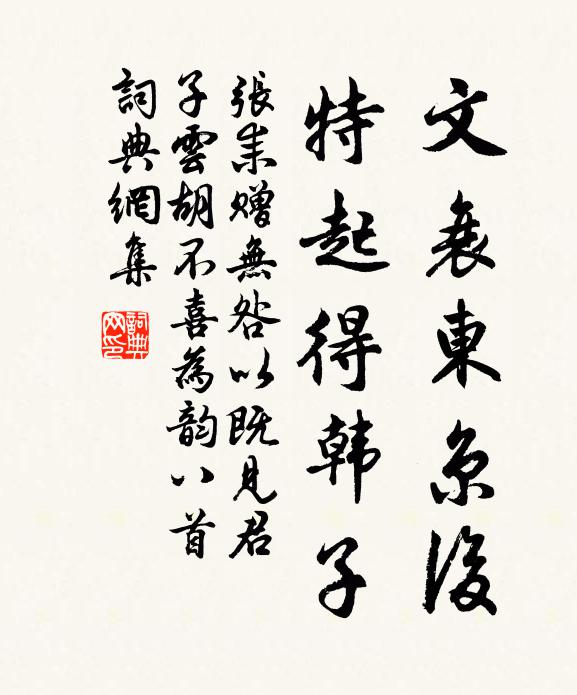 文衰東京後
特起得韓子
張耒贈無咎以既見君
子雲胡不喜為韵八首
詞典網集
詞典网印